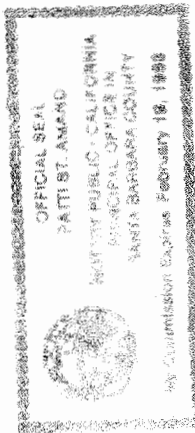 OFFICIAL SEAL
PATTI ST. AMAND
NOTARY PUBLIC - CALIFORNIA
PRINCIPAL OFFICE IN
SANTA BARBARA COUNTY
My Commission Expires February 18,